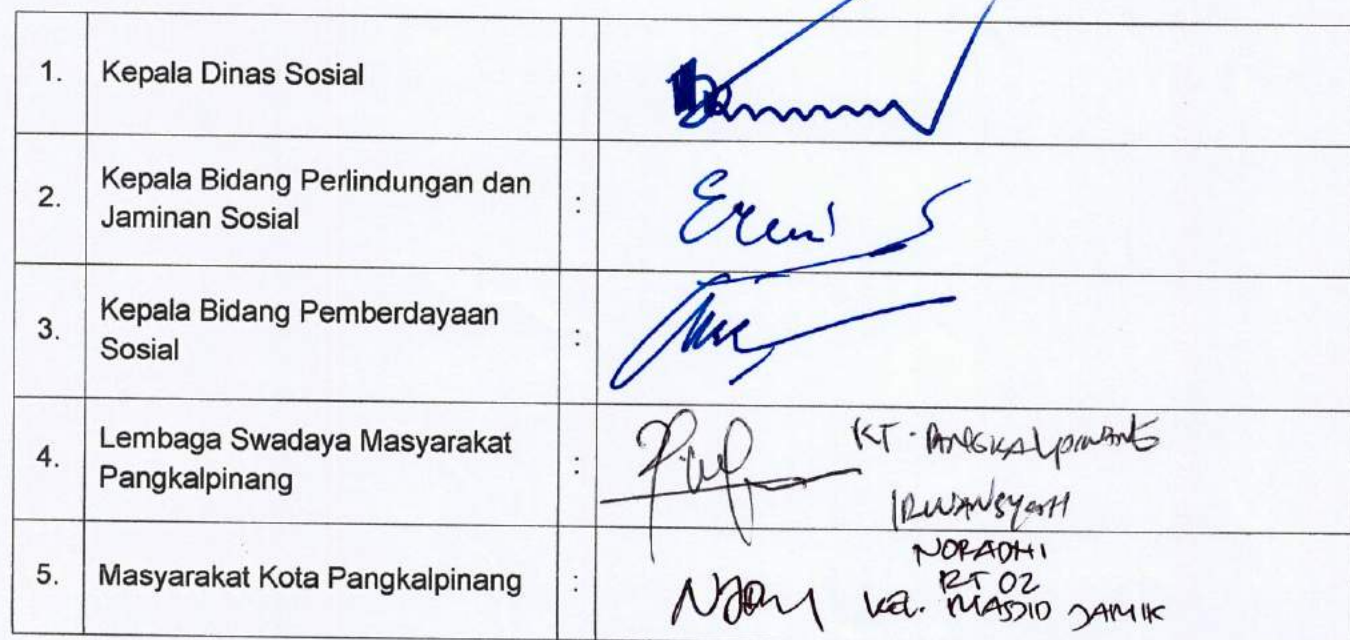 1. Kepala Dinas Sosial :
2. Kepala Bidang Perlindungan dan
Jaminan Sosial :
3. Kepala Bidang Pemberdayaan
Sosial :
4. Lembaga Swadaya Masyarakat
Pangkalpinang :
KT. PANGKALPINANG
IRWANSYAH
5. Masyarakat Kota Pangkalpinang :
NORADHI
RT 02
Kel. MASJID JAMIK